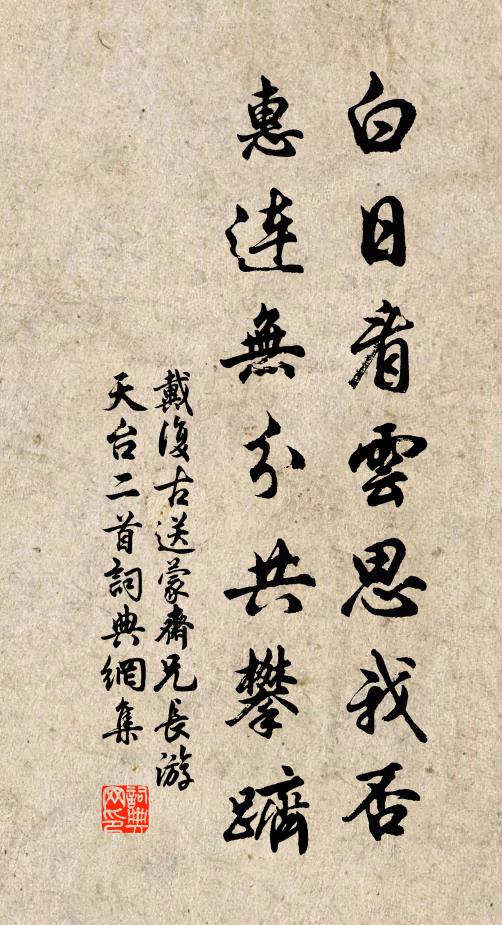 白日看雲思我否
惠連無分共攀躋
戴復古送蒙齋兄長游
天台二首詞典網集
詞典網印